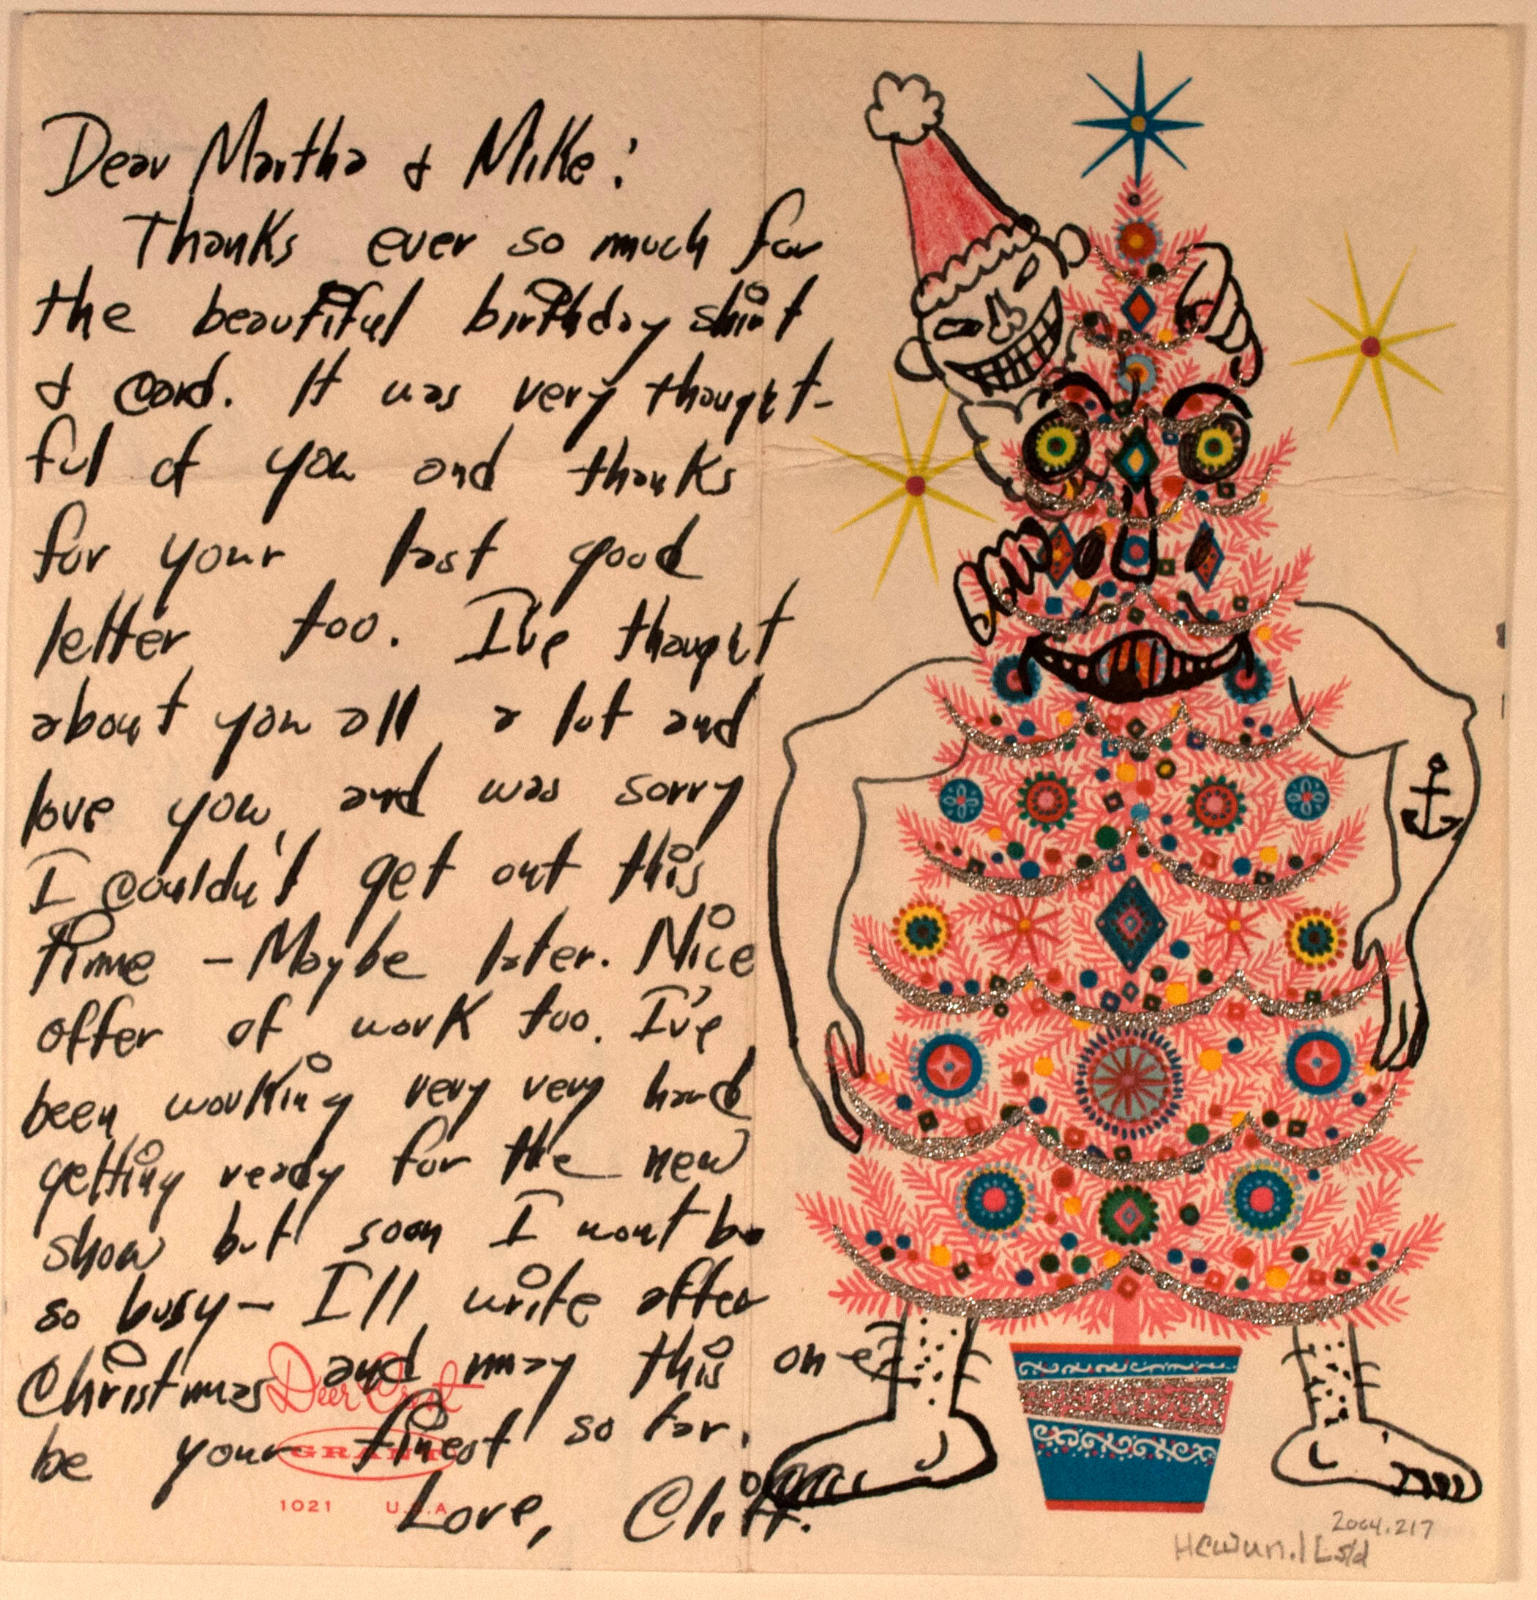 Dear Martha & Mike:
Thanks ever so much for
the beautiful birthday shirt
& card. It was very thought-
ful of you and thanks
for your last good
letter too. I've thought
about you all a lot and
love you, and was sorry
I couldn't get out this
time – Maybe later. Nice
offer of work too. I've
been working very very hard
getting ready for the new
show but soon I wont be
so busy – I'll write after
Christmas and may this one
be your finest so far.
Love, Cliff.
GRANT
1021 U.S.A
2004.217